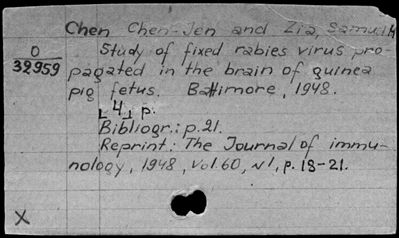 Chen Chen-Jen and Zia, Samuel H
O
32959
Study of fixed rabies virus pro-
pagated in the brain of guinea
pig fetus. Baltimore, 1948.
[4] p.
Bibliogr.: p.21.
Reprint: The Journal of immu-
nology, 1948, vol.60, N1, p. 18-21.
X